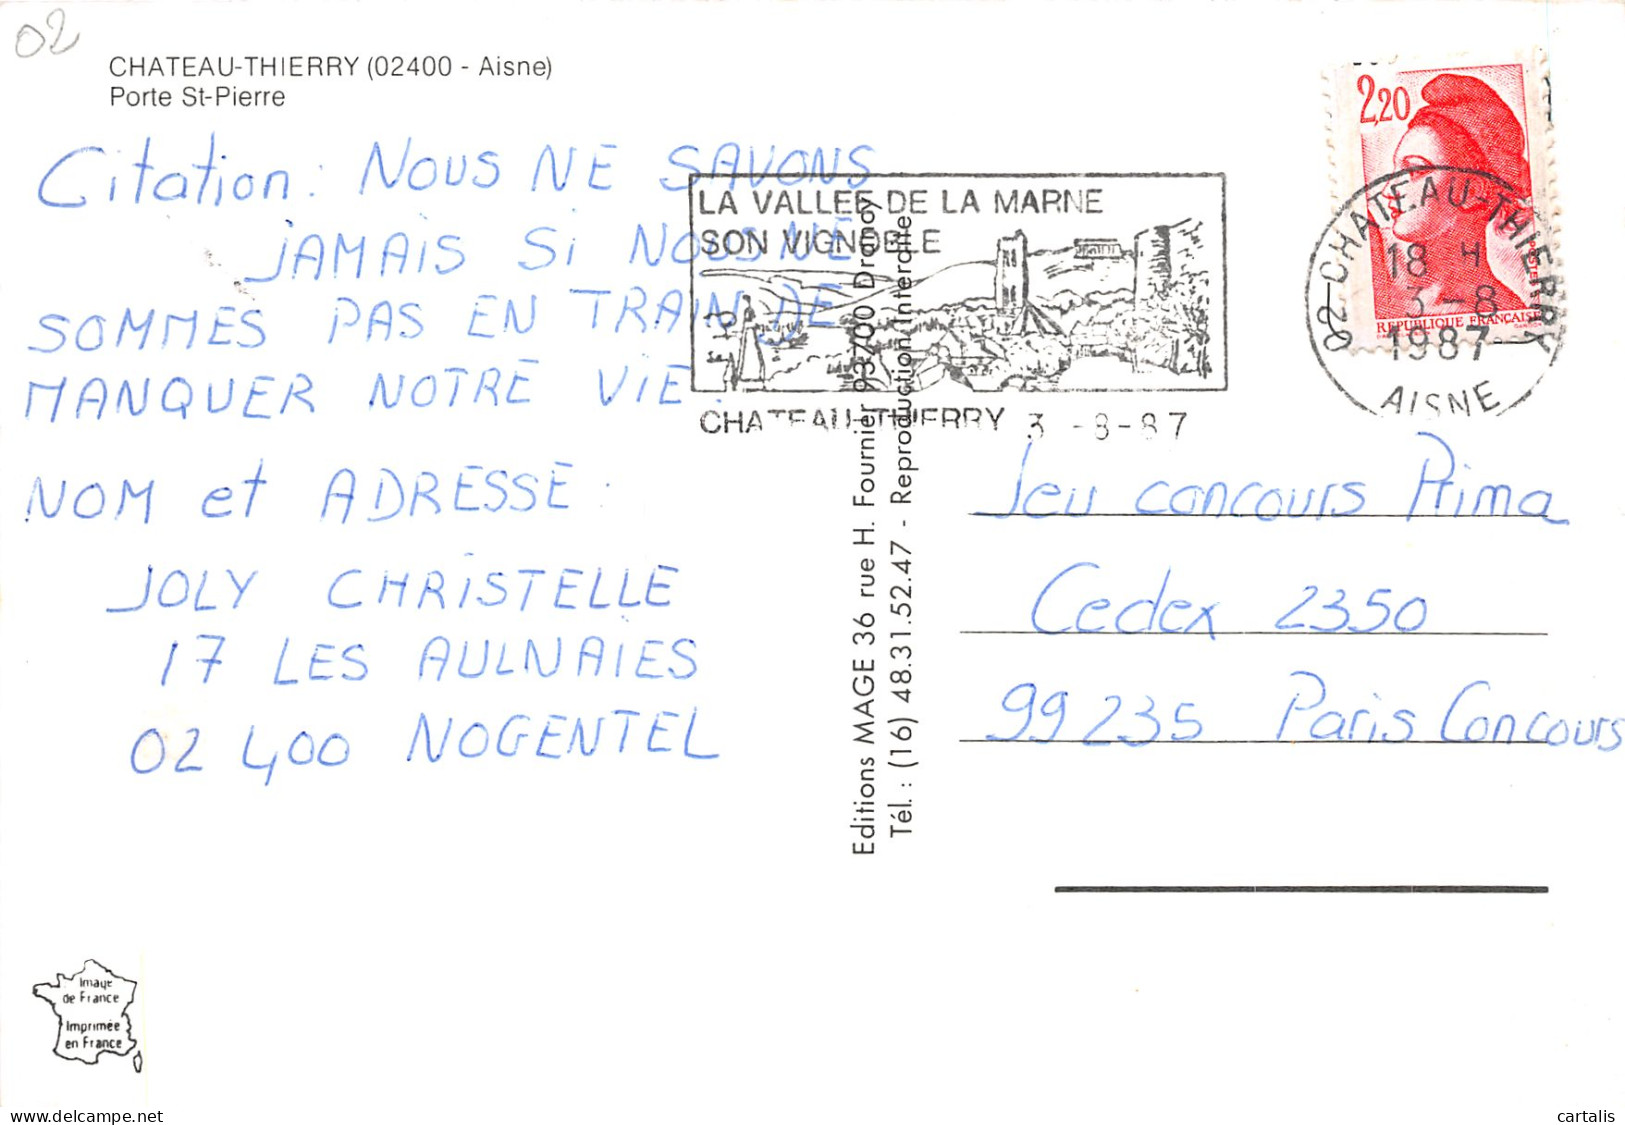 02
CHATEAU-THIERRY (02400 - Aisne)
Porte St-Pierre
Citation : NOUS NE SAVONS
JAMAIS SI NOUS NE
SOMMES PAS EN TRAIN DE
MANQUER NOTRE VIE.
NOM et ADRESSE :
JOLY CHRISTELLE
17 LES AULNAIES
02 400 NOGENTEL
LA VALLEE DE LA MARNE
SON VIGNOBLE
CHATEAU-THIERRY 3 -8-87
Editions MAGE 36 rue H. Fournier 93700 Drancy
Tél. : (16) 48.31.52.47 - Reproduction Interdite
2,20
REPUBLIQUE FRANÇAISE
POSTES
02 CHATEAU-THIERRY
18 H
3-8
1987
AISNE
Jeu concours Prima
Cedex 2350
99 235 Paris Concours
Image
de France
Imprimée
en France
cartalis